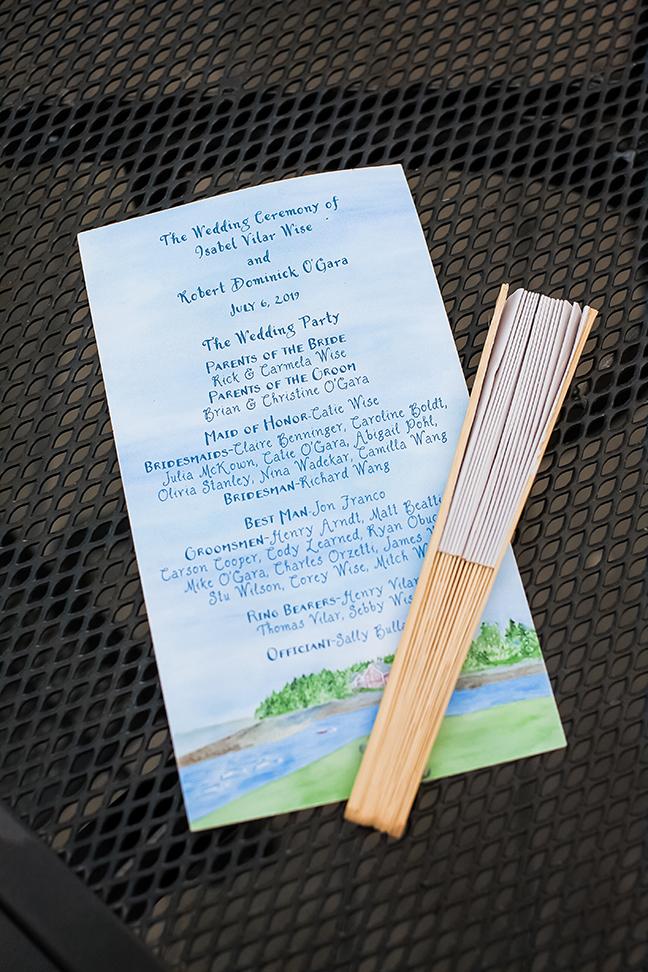 The Wedding Ceremony of
Isabel Vilar Wise
and
Robert Dominick O'Gara
July 6, 2019
The Wedding Party
Parents of the Bride
Rick & Carmela Wise
Parents of the Groom
Brian & Christine O'Gara
Maid of Honor-Catie Wise
Bridesmaids-Claire Benninger, Caroline Boldt,
Julia McKown, Catie O'Gara, Abigail Pohl,
Olivia Stanley, Nina Wadekar, Camilla Wang
Bridesman-Richard Wang
Best Man-Jon Franco
Groomsmen-Henry Arndt, Matt
Carson Cooper, Cody Learned, Ryan
Mike O'Gara, Charles Orzetti, James
Stu Wilson, Corey Wise, Mitch
Ring Bearers-Henry Vilar
Thomas Vilar, Sebby
Officiant-Sally